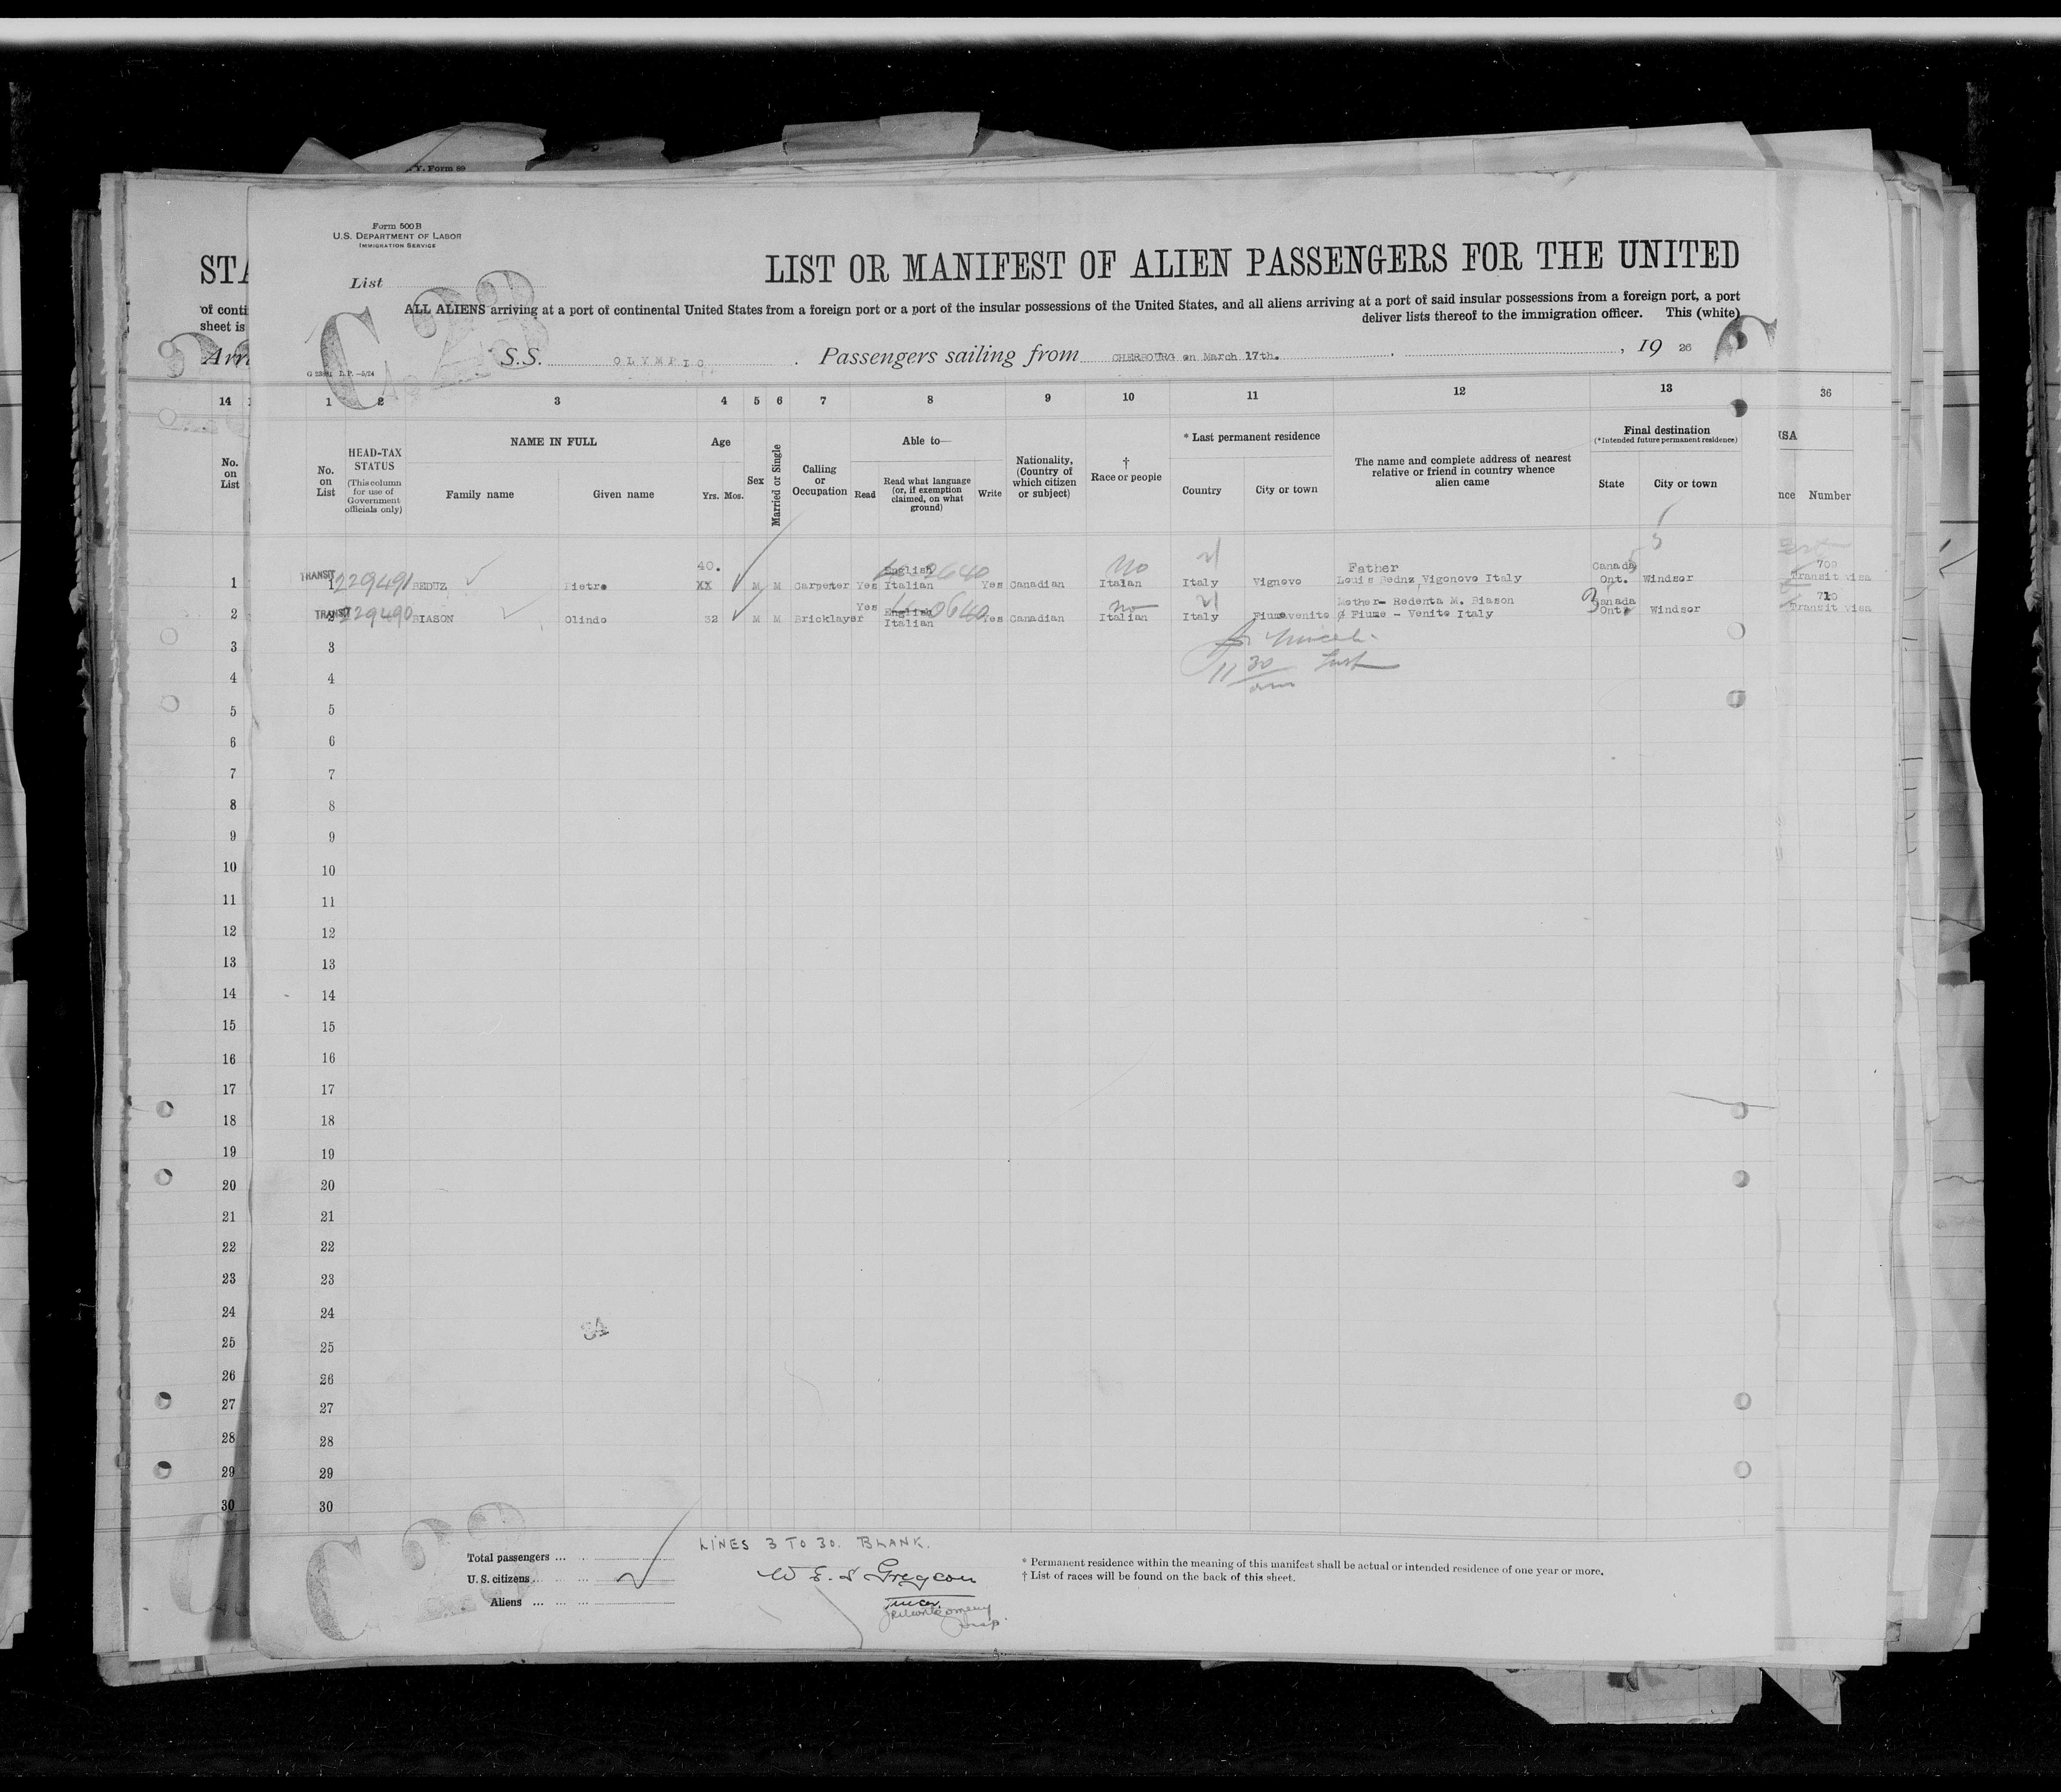 Y. Form 89
Form 500 B
U.S. DEPARTMENT OF LABOR
IMMIGRATION SERVICE
List
STA
LIST OR MANIFEST OF ALIEN PASSENGERS FOR THE UNITED
of conti
ALL ALIENS arriving at a port of continental United States from a foreign port or a port of the insular possessions of the United States, and all aliens arriving at a port of said insular possessions from a foreign port, a port
sheet is
deliver lists thereof to the immigration officer. This (white)
C 23
Arri
S.S. OLYMPIC. Passengers sailing from CHERBOURG on March 17th. , 19 26
14
1 2 3 4 5 6 7 8 9 10 11 12 13 36
No. on List
No. on List
HEAD-TAX STATUS
(This column for use of Government officials only)
NAME IN FULL
Family name
Given name
Age
Yrs. Mos.
Sex
Married or Single
Calling or Occupation
Able to—
Read
Read what language (or, if exemption claimed, on what ground)
Write
Nationality, (Country of which citizen or subject)
† Race or people
* Last permanent residence
Country
City or town
The name and complete address of nearest relative or friend in country whence alien came
Final destination
(*Intended future permanent residence)
State
City or town
ISA
nce
Number
40. English No Father Canada 700
1 TRANSIT 1 229491 BEDUZ Pietro XX M M Carpeter Yes Italian Yes Canadian Italan Italy Vignovo Louis Bednz, Vigonovo Italy Ont. Windsor Transit visa
Yes English No Mother- Redenta M. Biason Canada 710
2 TRANSIT 2 229490 BIASON Olindo 32 M M Bricklayer Italian Yes Canadian Italian Italy Fiumevenito Fiume - Venito Italy Ont Windsor Transit visa
3 3
11 30
am
4 4
5 5
6 6
7 7
8 8
9 9
10 10
11 11
12 12
13 13
14 14
15 15
16 16
17 17
18 18
19 19
20 20
21 21
22 22
23 23
24 24
25 25
26 26
27 27
28 28
29 29
30 30
C 23
LINES 3 TO 30. BLANK.
Total passengers
U.S. citizens
Aliens
* Permanent residence within the meaning of this manifest shall be actual or intended residence of one year or more.
† List of races will be found on the back of this sheet.